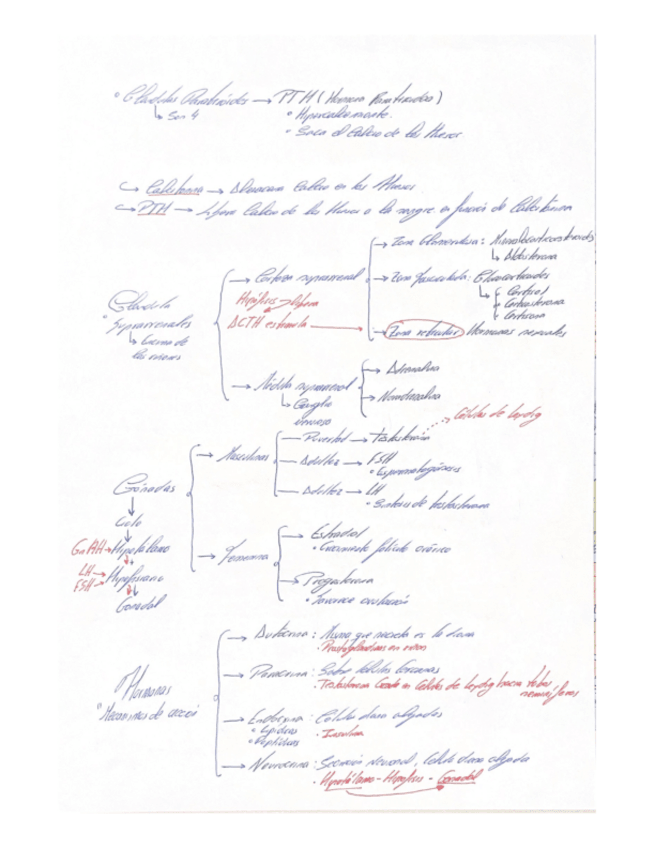 ° Glándulas Paratiroides → PTH (Hormona Paratiroidea)
↳ Son 4
° Hipercalcemiante.
° Saca el Calcio de los Huesos
↳ Calcitonina → Almacena Calcio en los Huesos
↳ PTH → Libera Calcio de los Huesos a la sangre en función de Calcitonina
Glándula
Suprarrenales
↳ Encima de
los riñones
→ Corteza suprarrenal
Hipófisis → libera
ACTH estimula
→ Zona Glomerulosa: Mineralocorticosteroides
↳ Aldosterona
→ Zona fasciculada: Glucocorticoides
↳ Cortisol
Corticosterona
Cortisona
→ Zona reticular Hormonas sexuales
→ Médula suprarrenal
↳ Ganglio
→ Adrenalina
→ Noradrenalina
Gónadas
→ Masculinas
Pubertad → Testosterona
Células de Leydig
Adultez → FSH
° Espermatogénesis
Adultez → LH
° Síntesis de testosterona
GnRH → Hipotálamo
LH →
FSH → Hipofisario
Gonadal
→ Femenina
→ Estradiol
° Crecimiento folículo ovárico
→ Progesterona
° Favorece ovulación
Hormonas
° Mecanismos de acción
→ Autocrina: Misma que secreta es la diana
· Prostaglandinas en
→ Paracrina: Sobre células cercanas
· Testosterona Creada en Células de Leydig hacia tubos seminíferos
→ Endocrina: Célula diana alejadas
° Lipídicas
° Peptídicas
· Insulina
→ Neurocrina: Secreción neuronal, Célula diana alejada
· Hipotálamo - Hipófisis - Gonadal